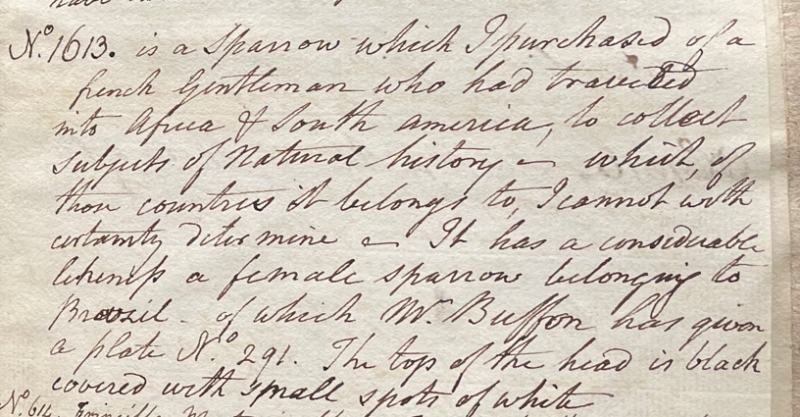 No. 1613. is a Sparrow which I purchased of a
french Gentleman who had travelled
into Africa & South america, to collect
subjects of Natural history — which of
those countries it belongs to, I cannot with
certainty determine — It has a considerable
likeness a female sparrow belonging to
Brazil - of which Mr. Buffon has given
a plate No. 291. The top of the head is black
covered with small spots of white
No. 614.